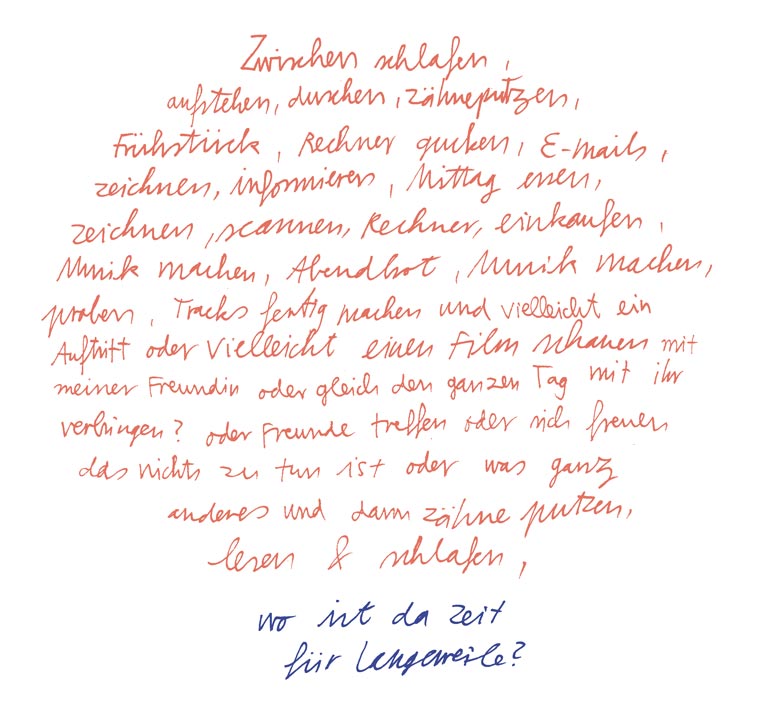 Zwischen schlafen,
aufstehen, duschen, zähneputzen,
Frühstück, Rechner gucken, E-Mails,
zeichnen, informieren, Mittag essen,
zeichnen, scannen, Rechner, einkaufen,
Musik machen, Abendbrot, Musik machen,
proben, Tracks fertig machen und vielleicht ein
Auftritt oder vielleicht einen Film schauen mit
meiner Freundin oder gleich den ganzen Tag mit ihr
verbringen? oder Freunde treffen oder sich freuen
das nichts zu tun ist oder was ganz
anderes und dann zähne putzen,
lesen & schlafen,
wo ist da Zeit
für Langeweile?